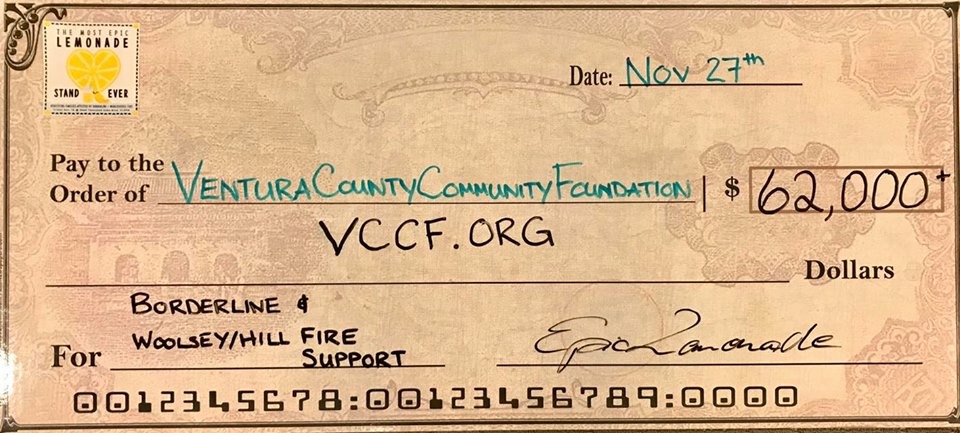 THE MOST EPIC
LEMONADE
STAND EVER
Date: Nov 27th
Pay to the
Order of VENTURA COUNTY COMMUNITY FOUNDATION $ 62,000+
VCCF.ORG
Dollars
BORDERLINE &
WOOLSEY/HILL FIRE
For SUPPORT Epic Lemonade
0012345678:00123456789:0000